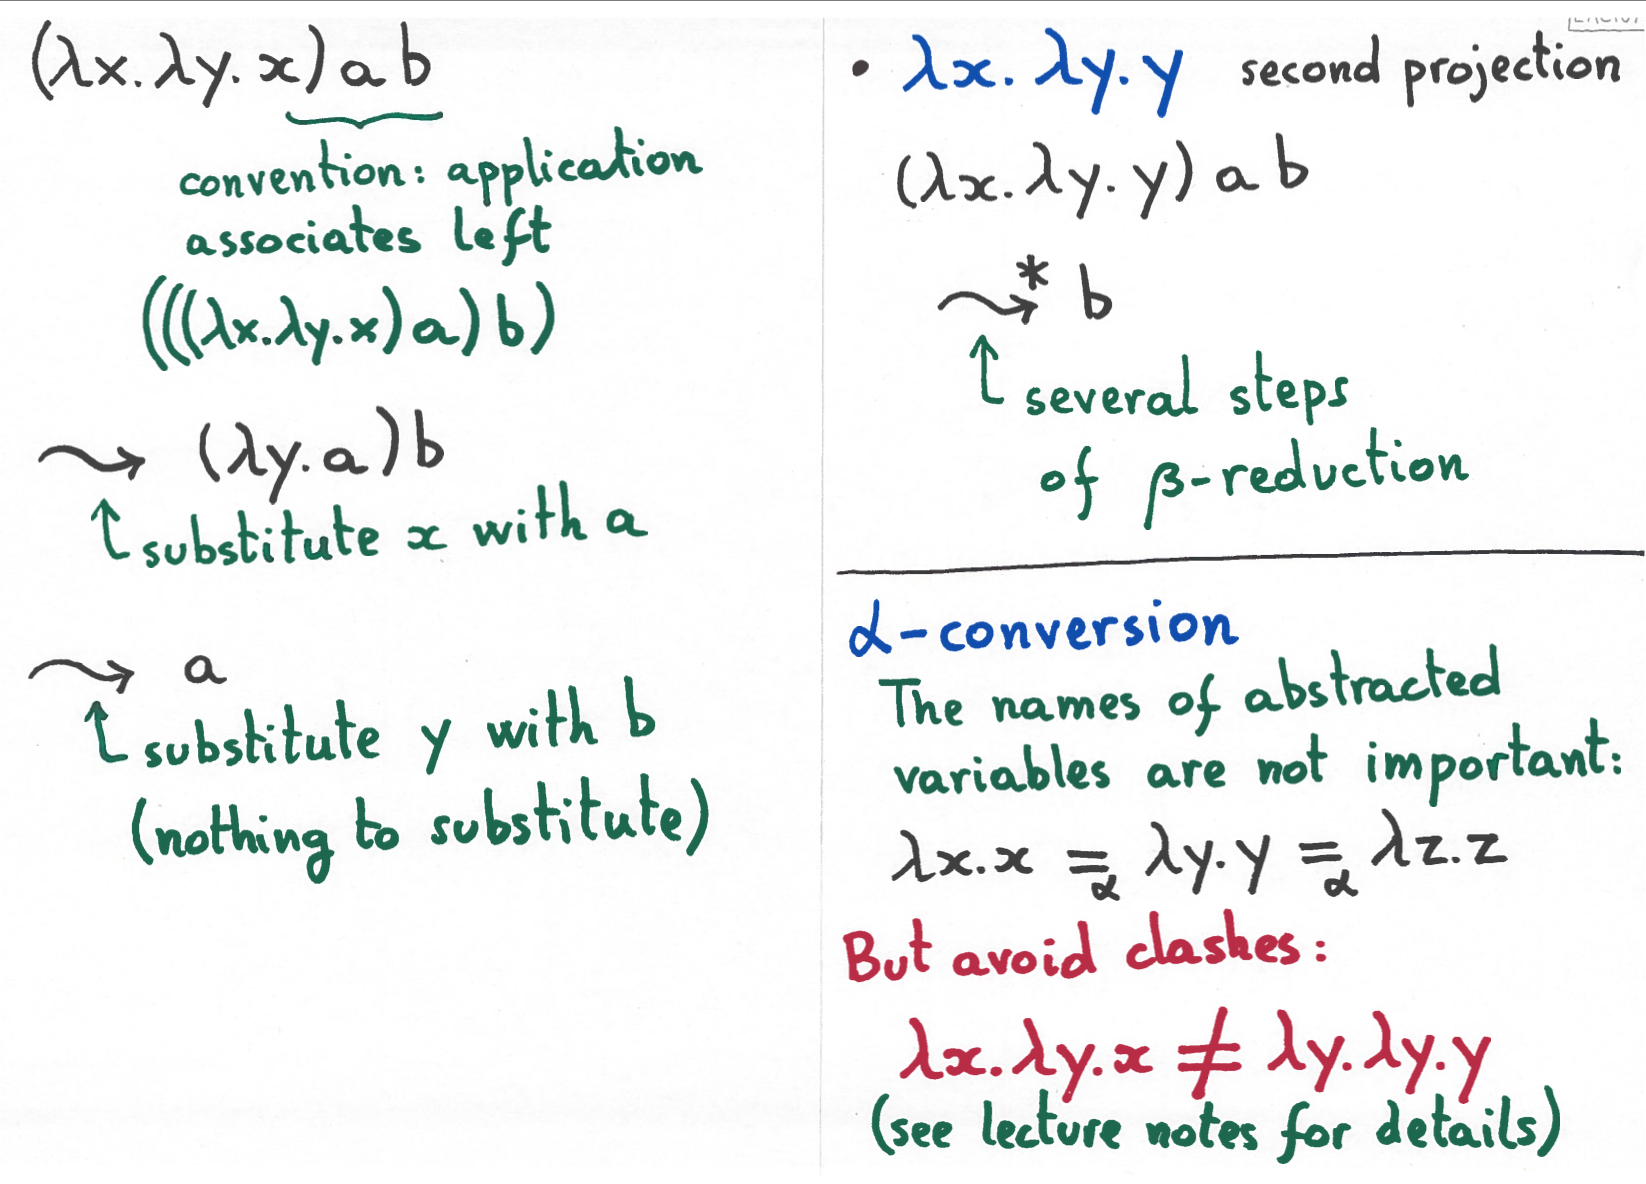 (λx.λy.x) a b
convention: application
associates left
(((λx.λy.x) a) b)
⇝ (λy.a) b
↑ substitute x with a
⇝ a
↑ substitute y with b
(nothing to substitute)
• λx.λy.y second projection
(λx.λy.y) a b
⇝* b
↑ several steps
of β-reduction
α-conversion
The names of abstracted
variables are not important:
λx.x =α λy.y =α λz.z
But avoid clashes:
λx.λy.x ≠ λy.λy.y
(see lecture notes for details)